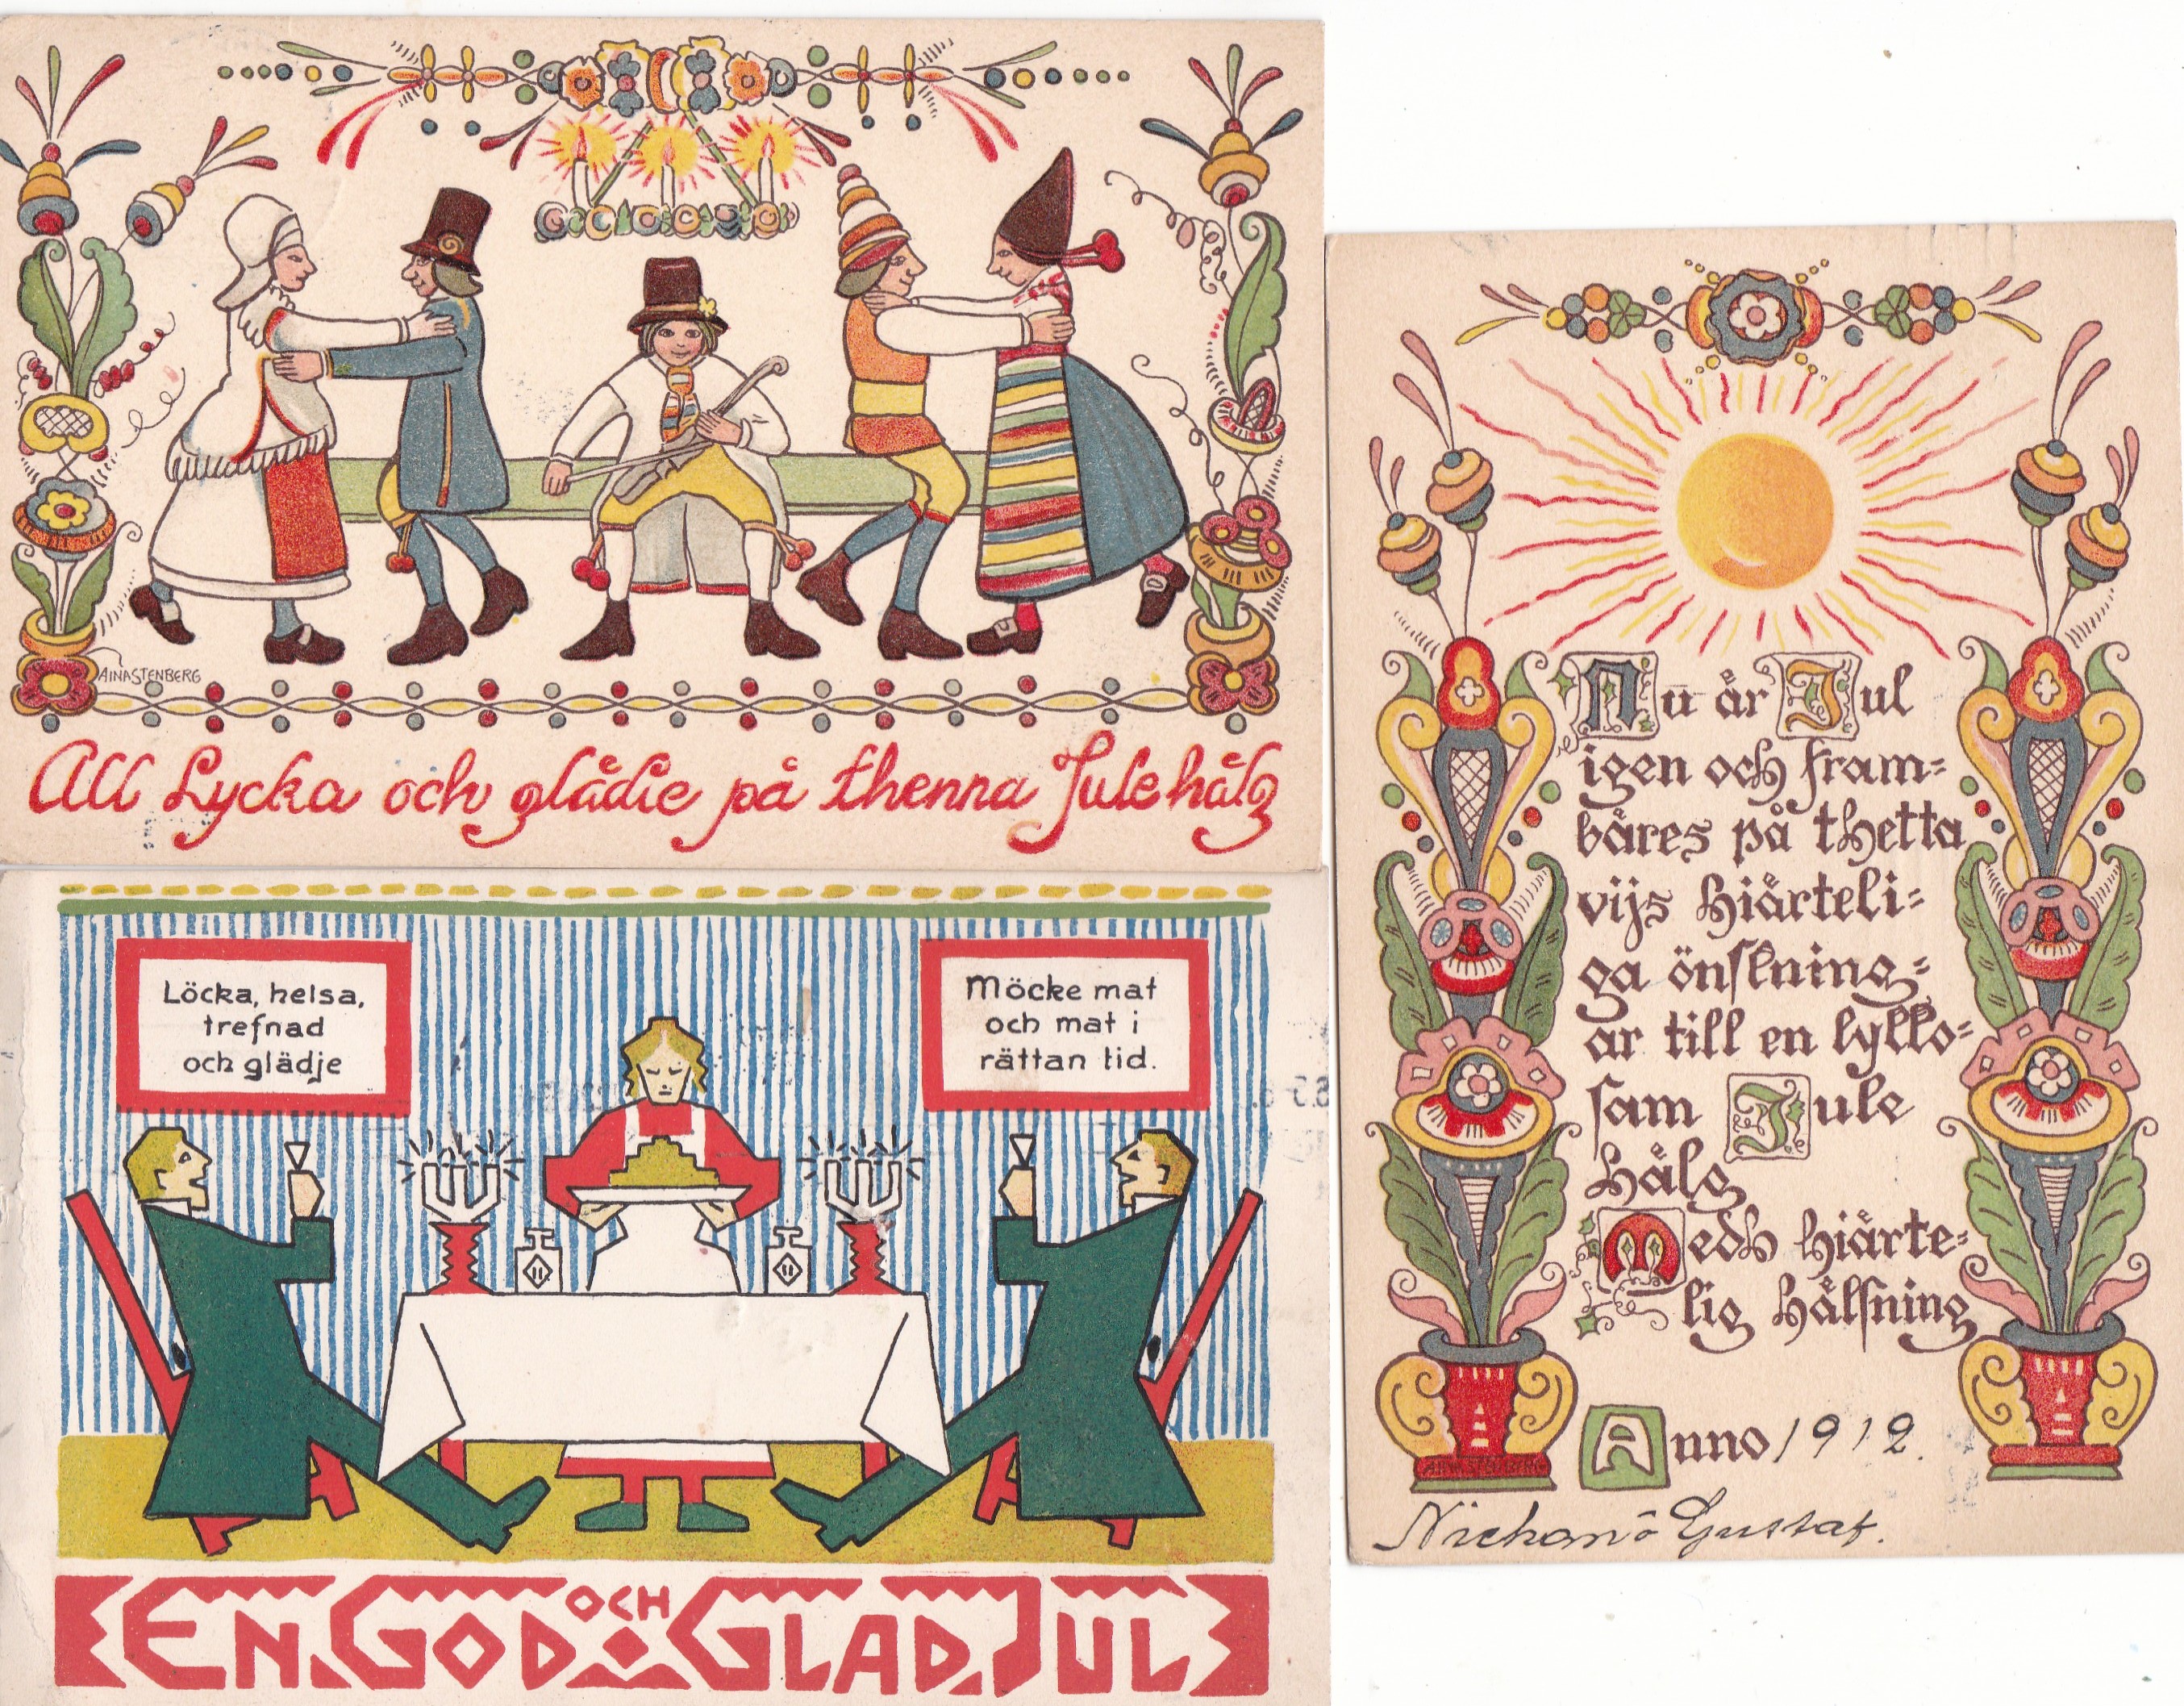 AINA STENBERG
All Lycka och glådie på thenna Jule hålg
Löcka, helsa,
trefnad
och glädje
Möcke mat
och mat i
rättan tid.
EN GOD OCH GLAD JUL
Nu år Jul
igen och fram=
båres på thetta
vijs hiårteli=
ga önskning=
ar till en lycko=
sam Jule
hålg
Medh hiårte=
lig hålsning
Anno 1912.
AINA STENBERG
Gustaf.